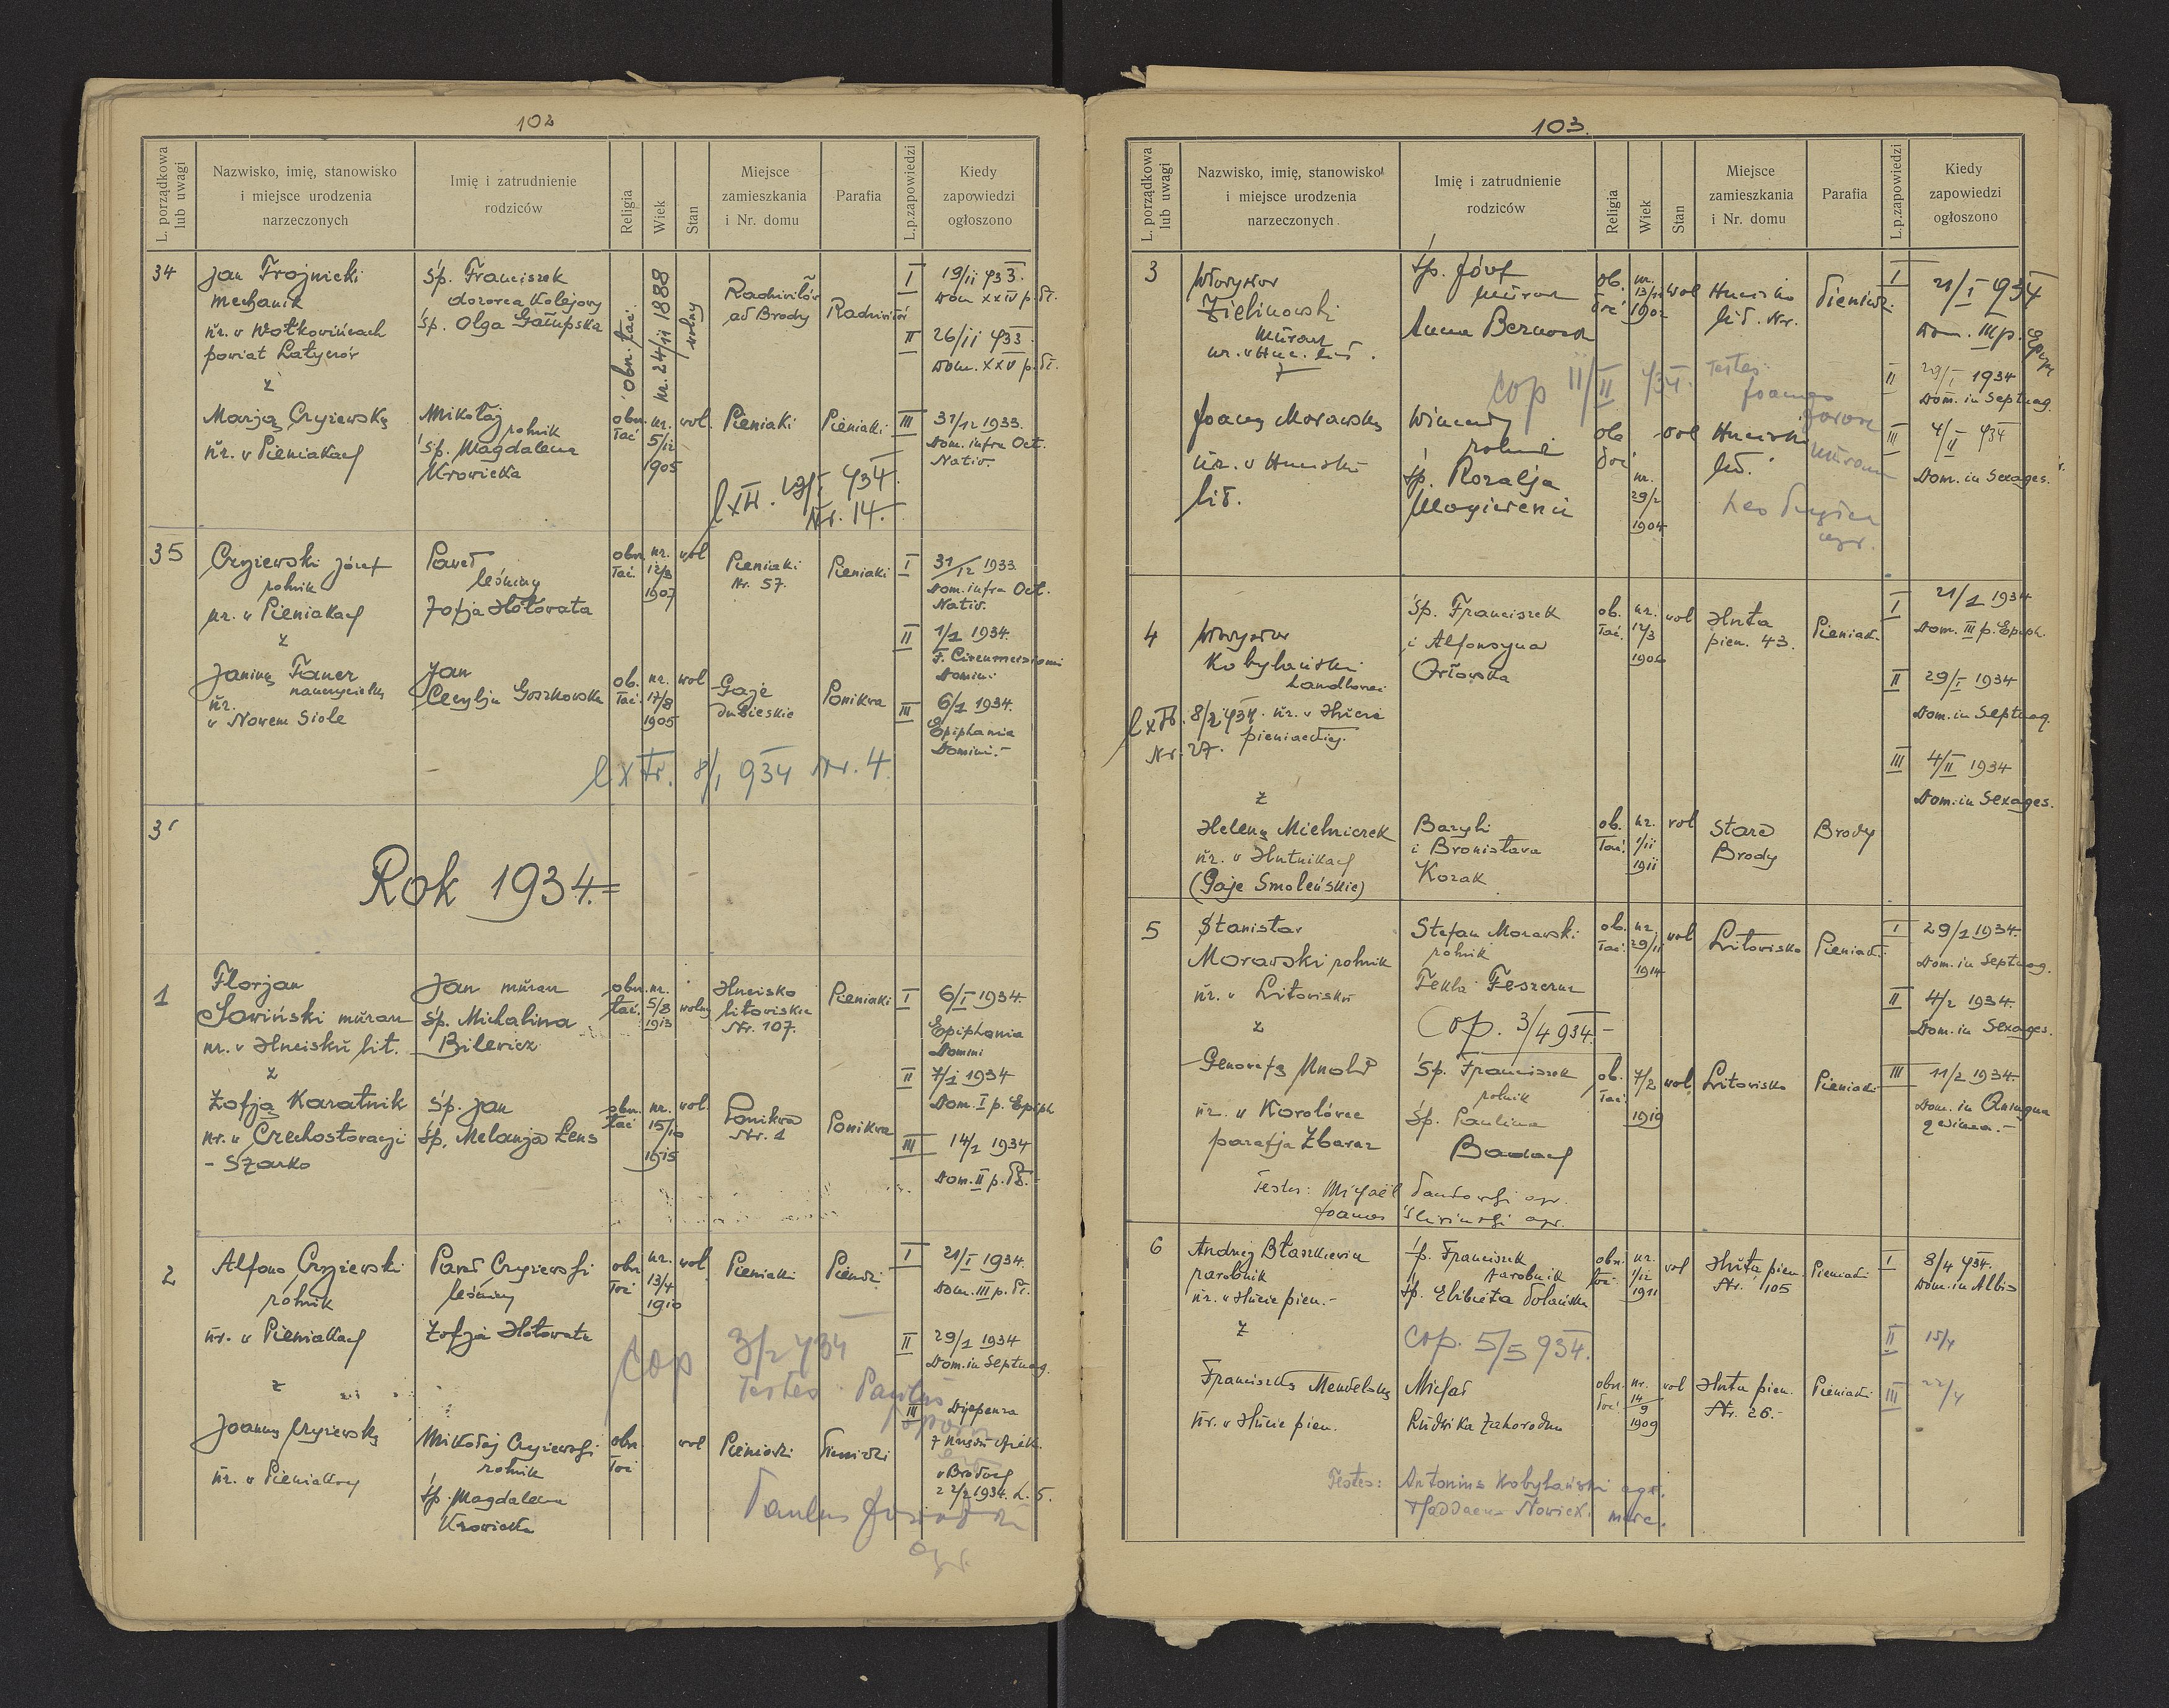 102
L. porządkowa lub uwagi
Nazwisko, imię, stanowisko
i miejsce urodzenia
narzeczonych
Imię i zatrudnienie
rodziców
Religia
Wiek
Stan
Miejsce
zamieszkania
i Nr. domu
Parafia
L.p.zapowiedzi
Kiedy
zapowiedzi
ogłoszono
34
Jan Trojnicki
mechanik
ur. w Wołkowińcach
powiat Latyczów
z
Śp. Franciszek
dozorca kolejowy
Śp. Olga
obrz. łać.
ur. 24/11 1888
wolny
Radziwiłów
ad Brody
Radziwiłów
I
19/11 933.
Dom XXIV p. Św.
II
26/11 933
Dom. XXV p. Św.
Marją Czyżewską
ur. w Pieniakach
Mikołaj
rolnik
Śp. Magdalena
Krowicka
obrz.
łać
ur.
5/12
1905
wol.
Pieniaki
Pieniaki
III
31/12 1933.
Dom. infra Oct.
Nativ.
934.
Nr. 14.
35
Czyżewski Józef
rolnik
ur. w Pieniakach
z
Paweł
leśniczy
Zofja Hołowata
obrz.
łać.
ur.
12/3
1907
wol
Pieniaki
Nr. 57.
Pieniaki
I
31/12 1933
Dom. infra Oct.
Nativ.
II
1/1 1934.
F. Circumcisionis
Domini
Janiną Fauer
nauczycielką
ur.
w Nowem Siole
Jan
Cecylja Goszkowska
ob.
łać.
ur.
17/8
1905
wol
Gaje
dubieskie
Ponikwa
III
6/1 1934.
Epiphania
Domini.-
8/1 934 Nr. 4.
3
Rok 1934.=
1
Florjan
Sowiński murarz
ur. w Hucisku lit.
z
Jan murarz
Śp. Michalina
Bilewicz
obrz.
łać.
ur.
5/8
1913
wolny
Hucisko
litowiskie
Nr. 107.
Pieniaki
I
6/I 1934.
Epiphania
Domini
II
7/1 1934
Dom. I p. Epiph
Zofją Karatnik
ur. w Czechosłowacji
- Szarko
Śp. Jan
Śp. Melanja Lens
obrz.
łać
ur.
15/10
1915
wol.
Ponikwa
Nr. 1
Ponikwa
III
14/1 1934
Dom. II p.
2
Alfons Czyżewski
rolnik
ur. w Pieniakach
z
Paweł Czyżewski
leśniczy
Zofja Hołowata
obrz
łać
ur.
13/4
1910
wol
Pieniaki
Pieniaki
I
21/I 1934.
Dom. III p.
II
29/1 1934
Dom. in Septuag.
cop 3/2 934
Testes Paulus
III
Dyspenza
Joanną Czyżewską
ur. w Pieniakach
Mikołaj Czyżewski
rolnik
Śp. Magdalena
Krowicka
obrz.
łać
wol
Pieniaki
Pieniaki
w Brodach
2/2 1934. L. 5.
Paulus
agr.
103.
L. porządkowa lub uwagi
Nazwisko, imię, stanowisko
i miejsce urodzenia
narzeczonych.
Imię i zatrudnienie
rodziców
Religia
Wiek
Stan
Miejsce
zamieszkania
i Nr. domu
Parafia
L.p.zapowiedzi
Kiedy
zapowiedzi
ogłoszono
3
Zielinowski
murarz
Śp. Józef
murarz
Anna
ob.
łać
ur.
wol
Hucisko
lit. Nr.
Pieniaki
I
21/I 934
Dom. III p. Epiph
cop 11/II 934.
Testes
Joannes
II
29/I 1934
Dom. in Septuag.
Joanną Morawską
ur. w Hucisku
lit.
Wincenty
rolnik
Śp. Rozalja
ob
łać
ur.
29/2
1904
wol
Hucisko
lit.
III
4/II 934
Dom. in Sexages.
Leo
agr.
4
Kobylański
ur. w Hucie
pieniackiej.
Śp. Franciszek
i Alfonsyna
Orłowska
ob.
łać.
ur.
12/3
1906
wol
Huta
pien. 43.
Pieniaki
I
21/1 1934
Dom. III p. Epiph.
II
29/I 1934
Dom. in Septuag.
III
4/II 1934
Dom. in Sexages.
8/2 934.
Nr. 27.
z
Heleną Mielniczek
ur. w Hutnikach
(Gaje Smoleńskie)
Bazyli
i Bronisława
Kozak
ob.
łać.
ur.
1/11
1911
wol
Stare
Brody
Brody
5
Stanisław
Morawski rolnik
ur. w Litowisku
z
Stefan Morawski
rolnik
Tekla
Cop. 3/4 934.-
ob.
łać.
ur.
29/11
1914
wol
Litowisko
Pieniaki
I
29/1 1934.
Dom. in Septuag.
II
4/2 1934.
Dom. in Sexages.
Genowefą
ur. w Korolówce
parafja Zbaraż
Śp. Franciszek
rolnik
Śp. Paulina
ob.
łać.
7/2
1919
wol
Litowisko
Pieniaki
III
11/2 1934.
Dom. in Quinqua
gesima.-
Testes: Michaël agr.
Joannes Śliwiński agr.
6
Andrzej Błaszkiewicz
parobnik
ur. w Hucie pien.-
z
Śp. Franciszek
parobnik
Śp. Elżbieta
cop. 5/5 934.
obrz.
łać.
ur.
1/12
1911
wol
Huta pien.
Nr. 105
Pieniaki
I
8/4 934.
Dom. in Albis
II
15/4
Franciszką Mendelską
ur. w Hucie pien.
Michał
Ludwika Zahorodna
obrz.
łać
ur.
14/9
1909
wol
Huta pien.
Nr. 26.-
Pieniaki
III
22/4
Testes: Antonius Kobylański agr.
Thaddaeus Nowicki murc.